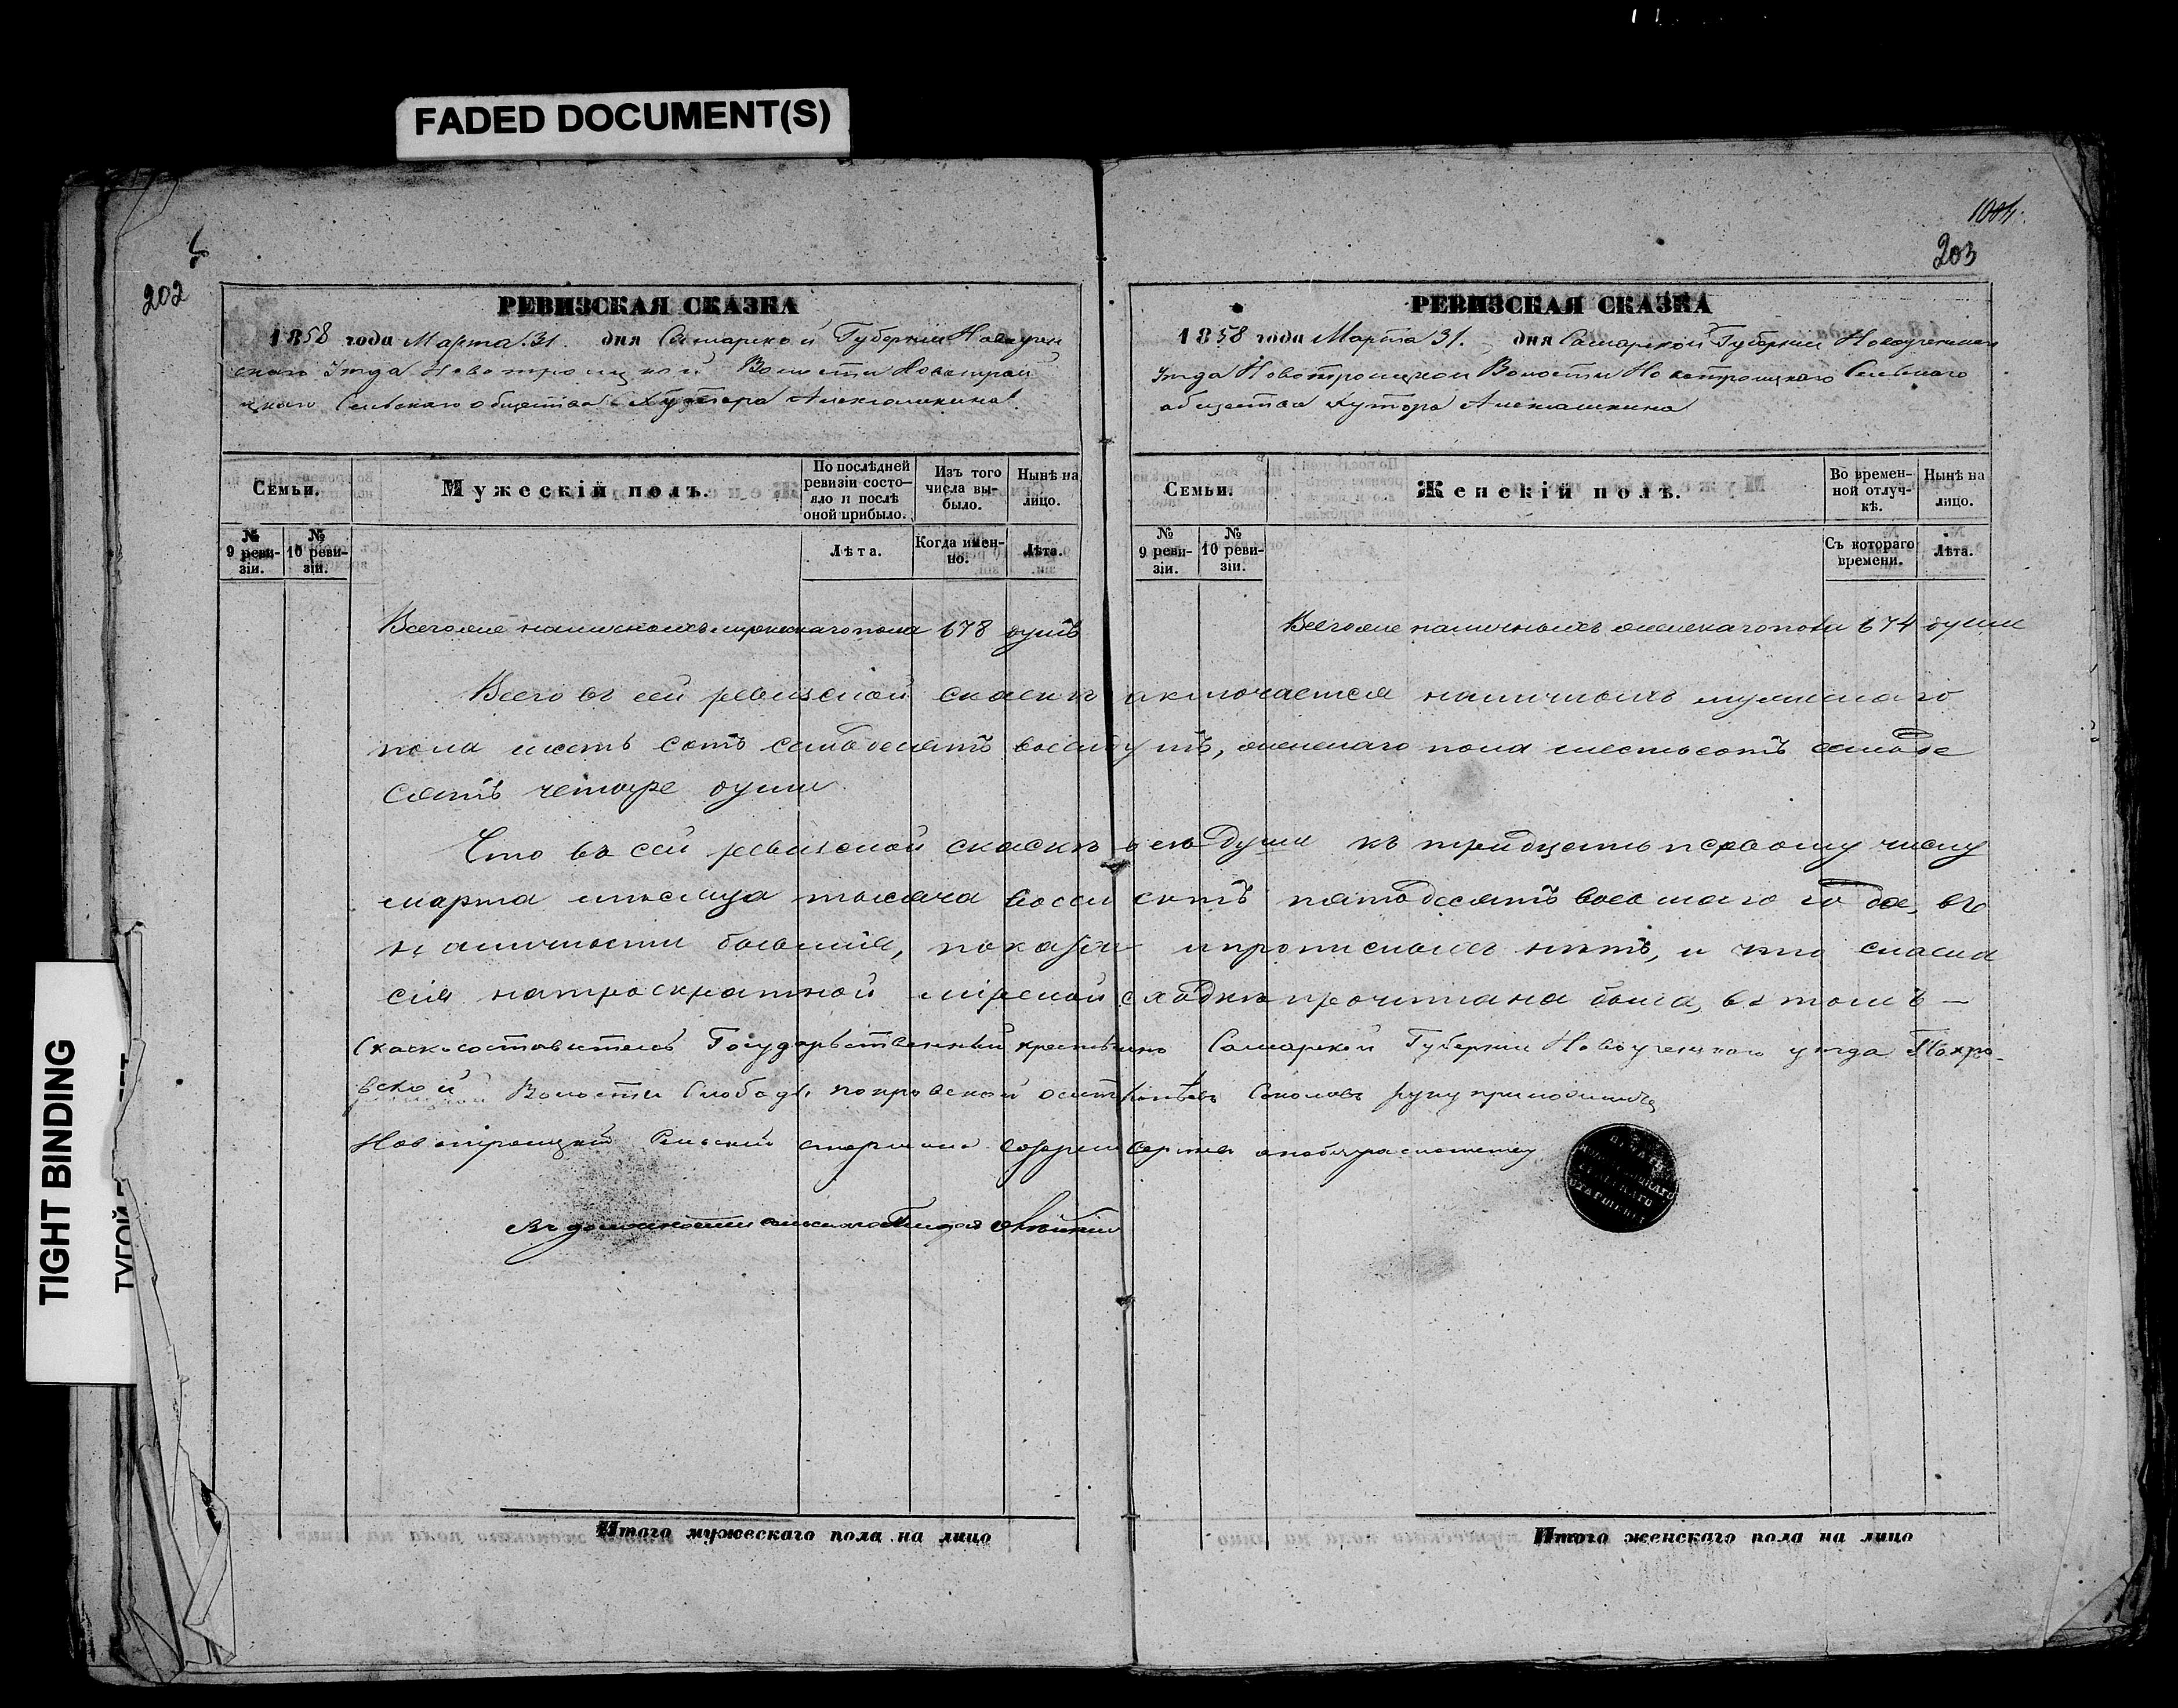 FADED DOCUMENT(S)
TIGHT BINDING
202
РЕВИЗСКАЯ СКАЗКА
1858 года Марта 31. дня Самарской Губернии Новоузен
скаго Уезда Новотроицкой Волости Новотрои
цкаго Сельскаго общества Хутора Алексашкина
Семьи.
Мужескій полъ.
По послѣдней ревизіи состояло и послѣ оной прибыло.
Изъ того числа выбыло.
Нынѣ на лицо.
№ 9 ревизіи.
№ 10 ревизіи.
Лѣта.
Когда именно.
Лѣта.
Всего же наличныхъ мужескаго пола 678 душъ
1004.
203
РЕВИЗСКАЯ СКАЗКА
1858 года Марта 31. дня Самарской Губернии Новоузенскаго
Уезда Новотроицкой Волости Новотроицкаго Сельскаго
общества Хутора Алексашкина
Семьи.
Женскій полъ.
Во временной отлучкѣ.
Нынѣ на лицо.
№ 9 ревизіи.
№ 10 ревизіи.
Съ котораго времени.
Лѣта.
Всего же наличныхъ женскаго пола 674 души
Всего въ сей ревизской скаскѣ заключается наличныхъ мужескаго
пола шесть сотъ семьдесятъ восемь душъ, женскаго пола шестьсотъ семьде
сятъ четыре души
Что въ сей ревизской скаскѣ всѣ души къ тридцать первому числу
марта мѣсяца тысяча восемь сотъ пятьдесятъ восьмаго года, въ
наличности бывшія, показаны и прописныхъ нѣтъ, и что скаска
сія на троекратной мірской сходкѣ прочитана была, въ томъ —
Скаскосоставитель Государственный крестьянинъ Самарской Губернии Новоузенскаго уезда Покро-
вской Волости Слободы покровской Соколовъ руку приложилъ
Новотроицкий Сельский старшина Сергеевъ
Въ должности сельскаго писаря
ПЕЧАТЬ НОВОТРОИЦКАГО СЕЛЬСКАГО СТАРШИНЫ
Итого мужескаго пола на лицо
Итого женскаго пола на лицо